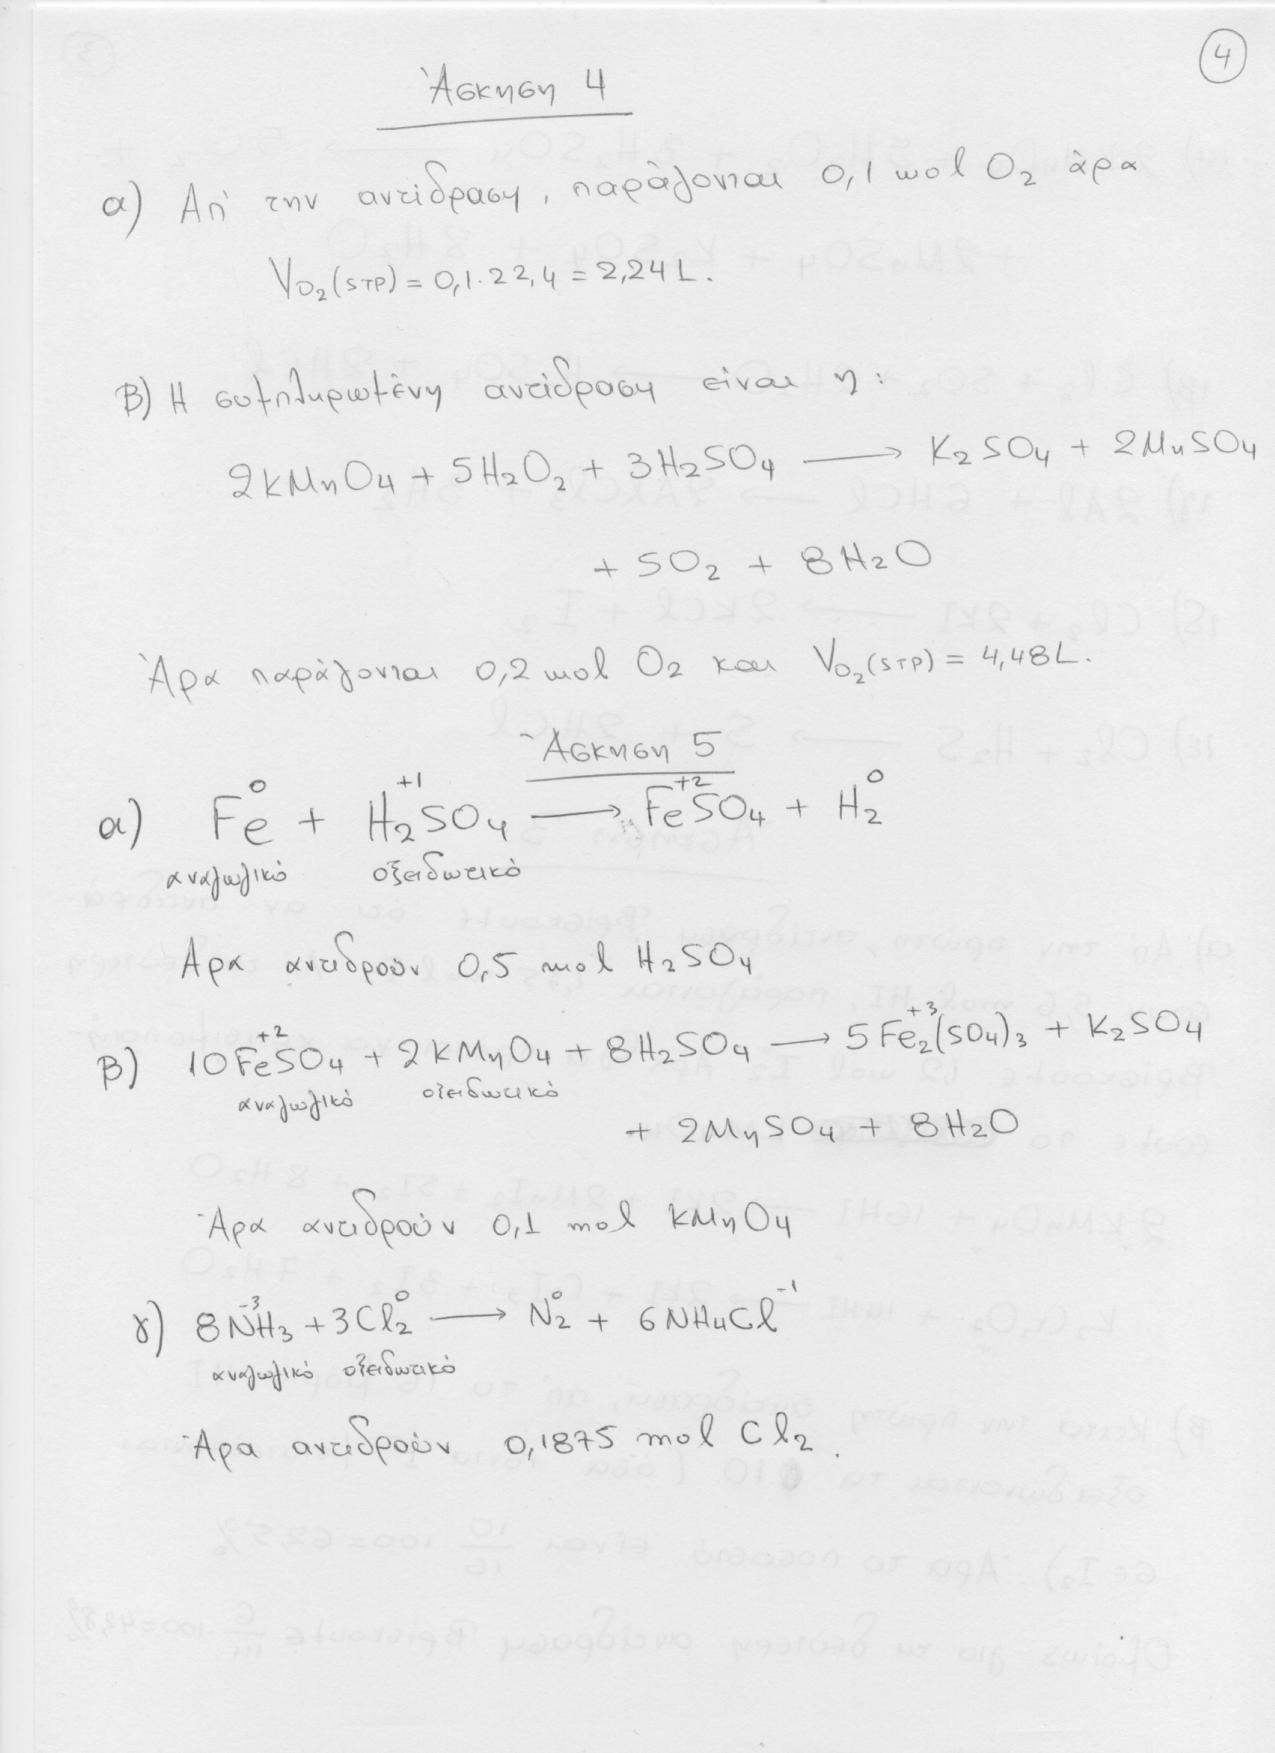 4
Άσκηση 4
α) Απ' την αντίδραση, παράγονται 0,1 mol O2 άρα
VO2(STP) = 0,1·22,4 = 2,24 L.
β) Η συμπληρωμένη αντίδραση είναι η:
2KMnO4 + 5H2O2 + 3H2SO4 → K2SO4 + 2MnSO4
+ 5O2 + 8H2O
Άρα παράγονται 0,2 mol O2 και VO2(STP) = 4,48 L.
Άσκηση 5
0 +1 +2 0
α) Fe + H2SO4 → FeSO4 + H2
αναγωγικό οξειδωτικό
Άρα αντιδρούν 0,5 mol H2SO4
+2 +3
β) 10FeSO4 + 2KMnO4 + 8H2SO4 → 5Fe2(SO4)3 + K2SO4
αναγωγικό οξειδωτικό
+ 2MnSO4 + 8H2O
Άρα αντιδρούν 0,1 mol KMnO4
-3 0 0 -1
γ) 8NH3 + 3Cl2 → N2 + 6NH4Cl
αναγωγικό οξειδωτικό
Άρα αντιδρούν 0,1875 mol Cl2.